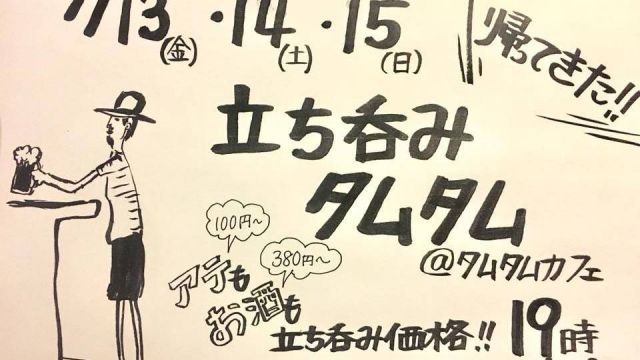 13(金)・14(土)・15(日)
帰ってきた!!
立ち呑み
タムタム
@タムタムカフェ
100円〜
アテも
380円〜
お酒も
立ち呑み価格!! 19時